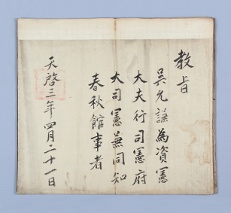 教旨
吳允謙為資憲
大夫行司憲府
大司憲兼同知
春秋館事者
天啓三年四月二十一日